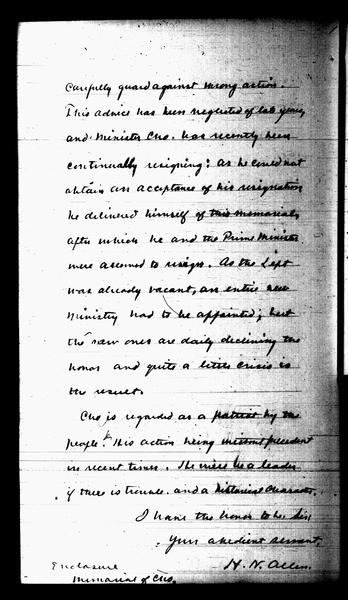 carefully guard against wrong action.
This advice has been neglected of late years,
and Minister Cho. has recently been
continually resigning: as he could not
obtain an acceptance of his resignation
he delivered himself of this memorial,
after which he and the Prime Minister
were allowed to resign. As the Left
was already vacant, an entire new
Ministry had to be appointed; but
the new ones are daily declining the
honor and quite a little crisis is
the result.
Cho is regarded as a patriot by the
people. His action being without precedent
in recent times. He will be a leader
if there is trouble. and a historical character.
I have the honor to be, Sir,
Your obedient servant,
H. N. Allen.
Enclosure
Memorial of Cho.